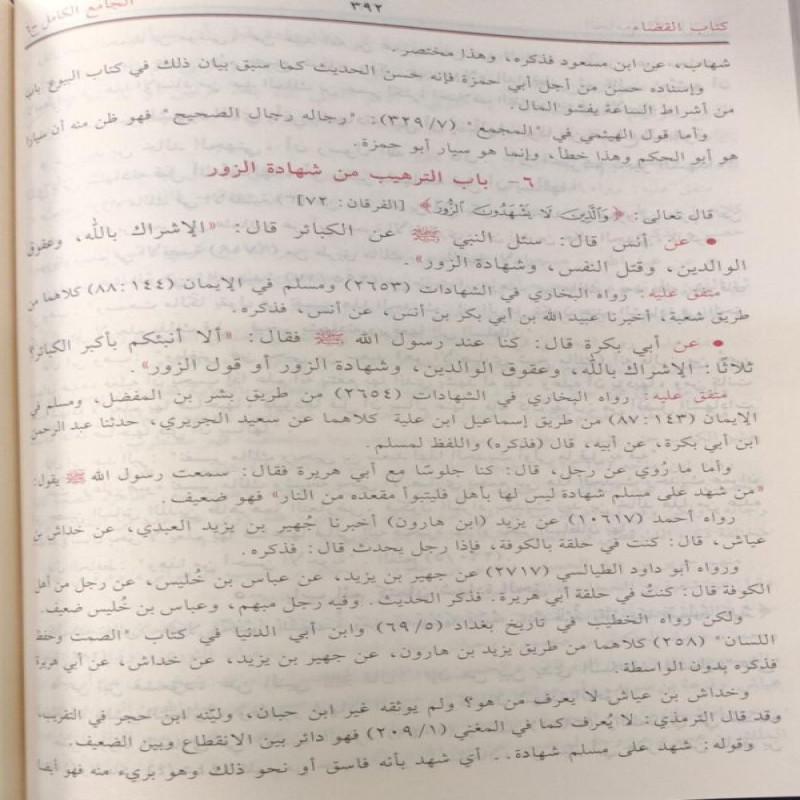 كتاب القضاء
٣٩٢
الجامع الكامل ج٤
شهاب، عن ابن مسعود فذكره، وهذا مختصر.
وإسناده حسن من أجل أبي حمزة فإنه حسن الحديث كما سبق بيان ذلك في كتاب البيوع باب
من أشراط الساعة يفشو المال.
وأما قول الهيثمي في "المجمع" (٣٢٩/٧): "رجاله رجال الصحيح" فهو ظن منه أن سيارا
هو أبو الحكم وهذا خطأ، وإنما هو سيار أبو حمزة.
٦- باب الترهيب من شهادة الزور
قال تعالى: ﴿وَالَّذِينَ لَا يَشْهَدُونَ الزُّورَ﴾ [الفرقان: ٧٢]
• عن أنس قال: سئل النبي ﷺ عن الكبائر قال: "الإشراك بالله، وعقوق
الوالدين، وقتل النفس، وشهادة الزور".
متفق عليه: رواه البخاري في الشهادات (٢٦٥٣) ومسلم في الإيمان (١٤٤: ٨٨) كلاهما من
طريق شعبة، أخبرنا عبيد الله بن أبي بكر بن أنس، عن أنس، فذكره.
• عن أبي بكرة قال: كنا عند رسول الله ﷺ فقال: "ألا أنبئكم بأكبر الكبائر؟
ثلاثًا: الإشراك بالله، وعقوق الوالدين، وشهادة الزور أو قول الزور".
متفق عليه: رواه البخاري في الشهادات (٢٦٥٤) من طريق بشر بن المفضل، ومسلم في
الإيمان (١٤٣: ٨٧) من طريق إسماعيل ابن علية كلاهما عن سعيد الجريري، حدثنا عبد الرحمن
ابن أبي بكرة، عن أبيه، قال (فذكره) واللفظ لمسلم.
وأما ما رُوي عن رجل، قال: كنا جلوسًا مع أبي هريرة فقال: سمعت رسول الله ﷺ يقول:
"من شهد على مسلم شهادة ليس لها بأهل فليتبوأ مقعده من النار" فهو ضعيف.
رواه أحمد (١٠٦١٧) عن يزيد (ابن هارون) أخبرنا جُهير بن يزيد العبدي، عن خداش بن
عياش، قال: كنت في حلقة بالكوفة، فإذا رجل يحدث قال: فذكره.
ورواه أبو داود الطيالسي (٢٧١٧) عن جهير بن يزيد، عن عباس بن خُليس، عن رجل من أهل
الكوفة قال: كنتُ في حلقة أبي هريرة. فذكر الحديث. وفيه رجل مبهم، وعباس بن خُليس ضعيف.
ولكن رواه الخطيب في تاريخ بغداد (٦٩/٥) وابن أبي الدنيا في كتاب "الصمت وحفظ
اللسان" (٢٥٨) كلاهما من طريق يزيد بن هارون، عن جهير بن يزيد، عن خداش، عن أبي هريرة
فذكره بدون الواسطة.
وخداش بن عياش لا يعرف من هو؟ ولم يوثقه غير ابن حبان، وليّنه ابن حجر في التقريب،
وقد قال الترمذي: لا يُعرف كما في المغني (٢٠٩/١) فهو دائر بين الانقطاع وبين الضعيف.
وقوله: شهد على مسلم شهادة.. أي شهد بأنه فاسق أو نحو ذلك وهو بريء منه فهو أيضا